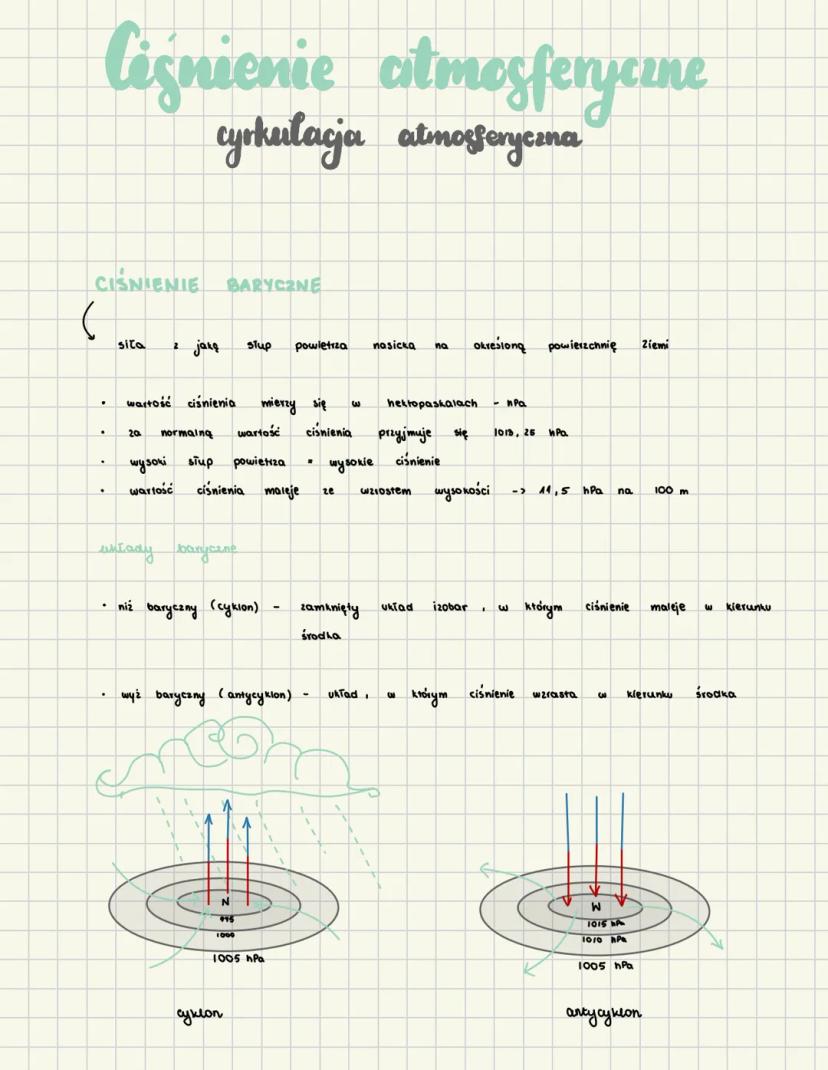 Ciśnienie atmosferyczne
cyrkulacja atmosferyczna
CIŚNIENIE BARYCZNE
siła z jaką słup powietrza nasicka na określoną powierzchnię Ziemi
• wartość ciśnienia mierzy się w hektopaskalach - hPa
• za normalną wartość ciśnienia przyjmuje się 1013,25 hPa
• wysoki słup powietrza = wysokie ciśnienie
• wartość ciśnienia maleje ze wzrostem wysokości -> 11,5 hPa na 100 m
układy baryczne
• niż baryczny (cyklon) - zamknięty układ izobar, w którym ciśnienie maleje w kierunku
środka
• wyż baryczny (antycyklon) - układ, w którym ciśnienie wzrasta w kierunku środka
N
995
1000
1005 hPa
cyklon
W
1015 hPa
1010 hPa
1005 hPa
antycyklon